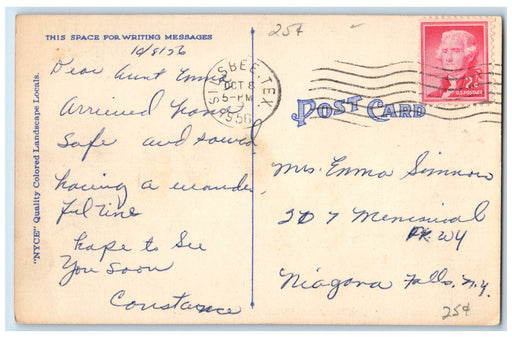 25¢
THIS SPACE FOR WRITING MESSAGES
10/8/56
Dear Aunt Emma
Arrived home
Safe and sound
having a wounder
ful time
hope to See
You soon
Constance
"NYCE" Quality Colored Landscape Locals.
BISBEE, TEX.
OCT 8
5-PM
1956
2¢
U.S. POSTAGE
POST CARD
Mrs. Emma Simmons
207
PK. WY
Niagara Falls, N.Y.
25¢